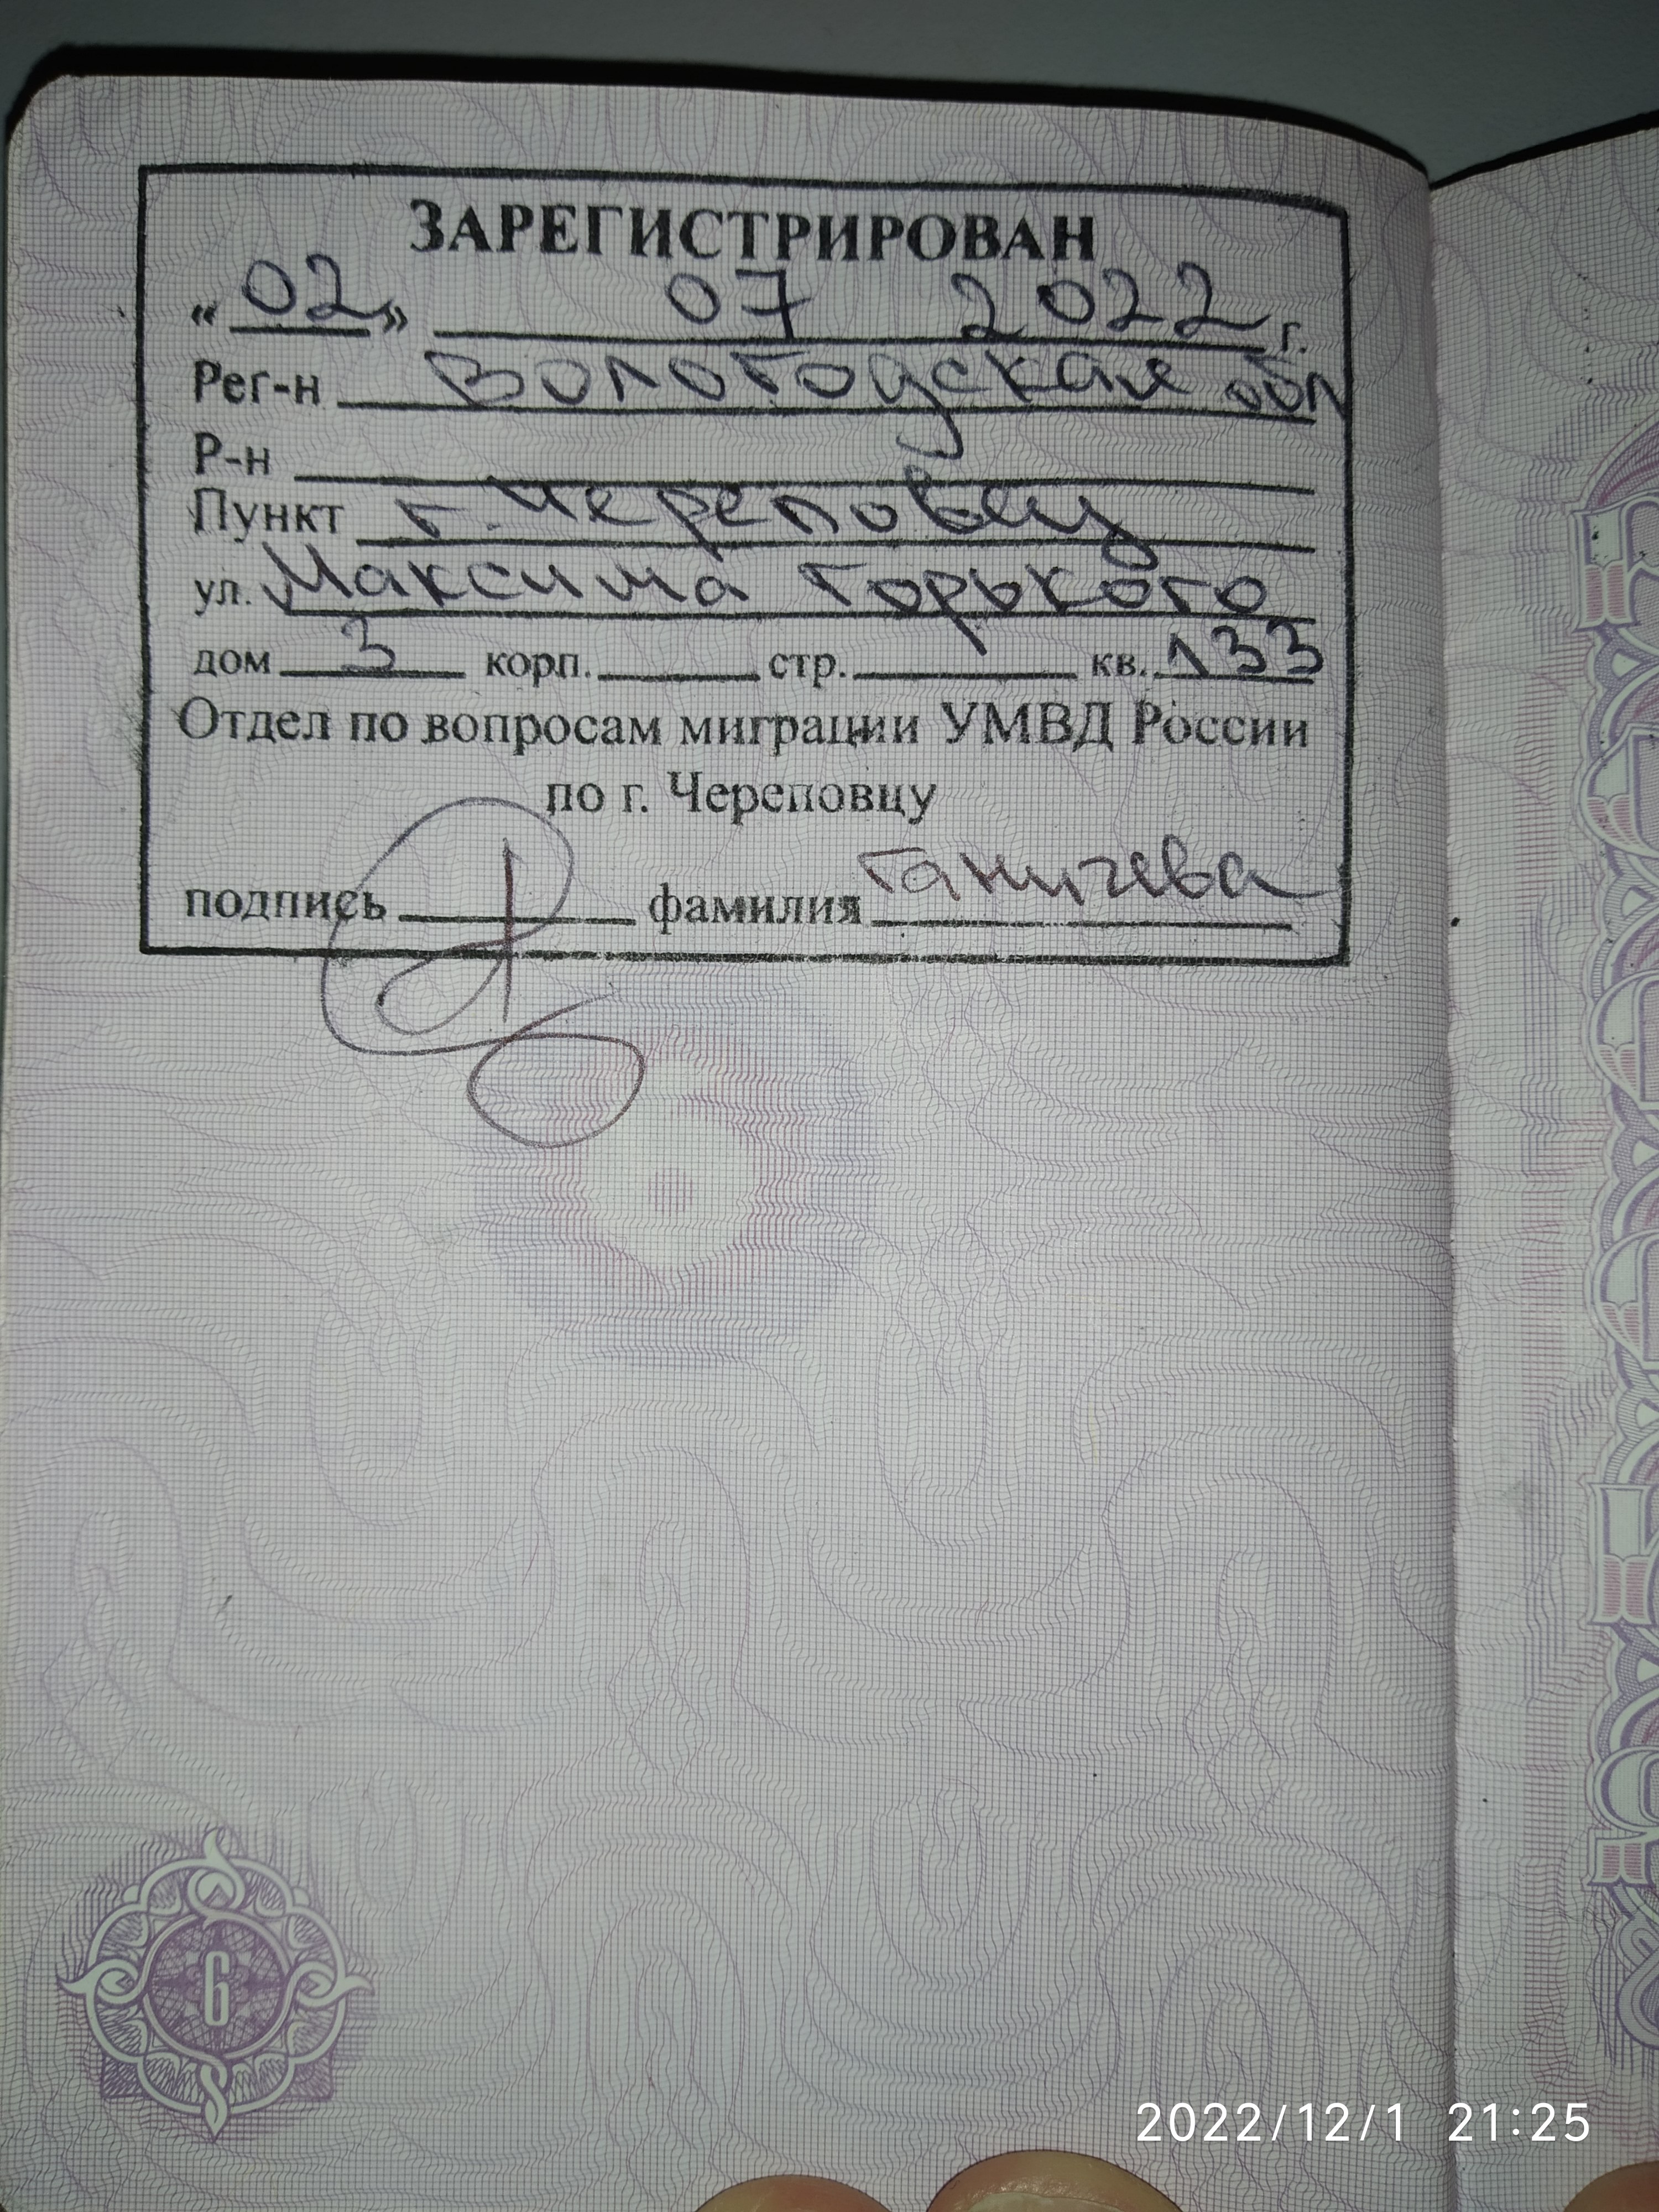 ЗАРЕГИСТРИРОВАН
«02» 07 2022 г.
Рег-н Вологодская обл
Р-н
Пункт г. Череповец
ул. Максима Горького
дом 3 корп. стр. кв. 133
Отдел по вопросам миграции УМВД России
по г. Череповцу
подпись фамилия Ганичева
6
2022/12/1 21:25